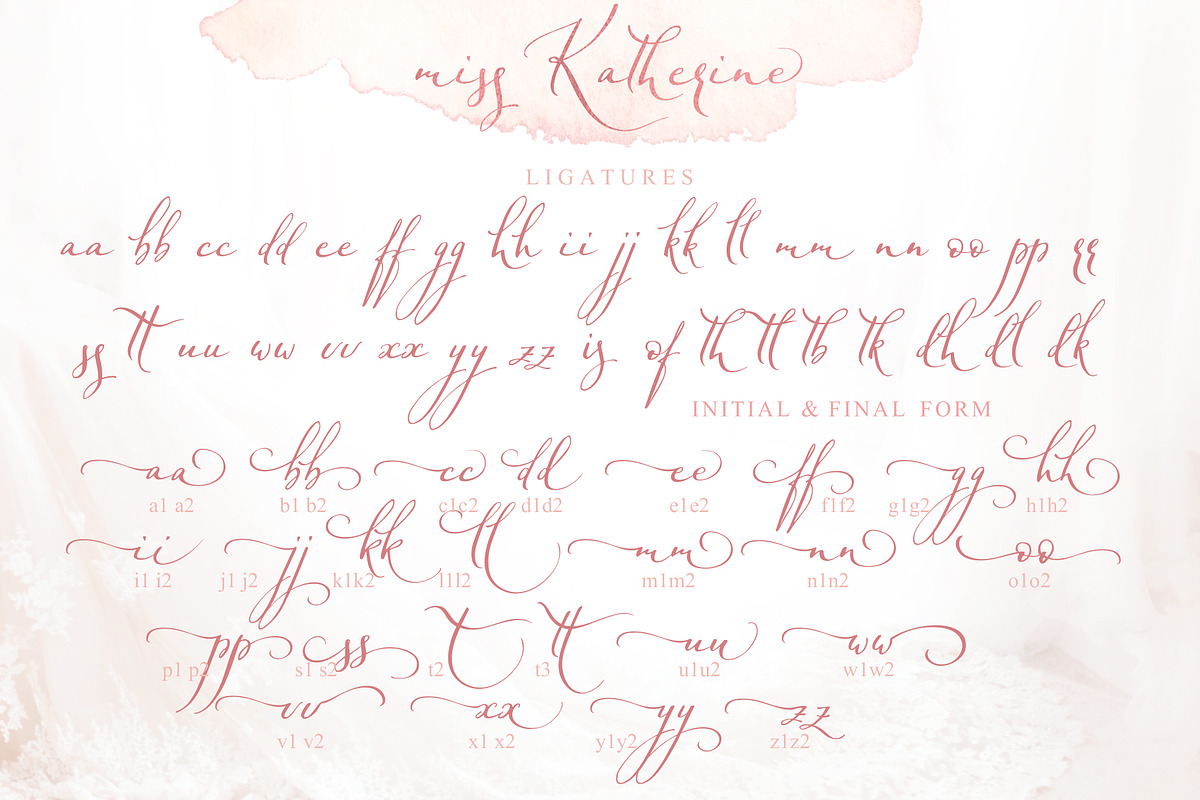 miss Katherine
LIGATURES
aa bb cc dd ee ff gg hh ii jj kk ll mm nn oo pp rr
ss tt uu ww vv xx yy zz is of th tt tb tk dh dl dk
INITIAL & FINAL FORM
aa bb cc dd ee ff gg hh
a1 a2 b1 b2 c1c2 d1d2 e1e2 f1f2 g1g2 h1h2
ii jj kk ll mm nn oo
i1 i2 j1 j2 k1k2 l1l2 m1m2 n1n2 o1o2
pp ss t tt uu ww
p1 p2 s1 s2 t2 t3 u1u2 w1w2
vv xx yy zz
v1 v2 x1 x2 y1y2 z1z2